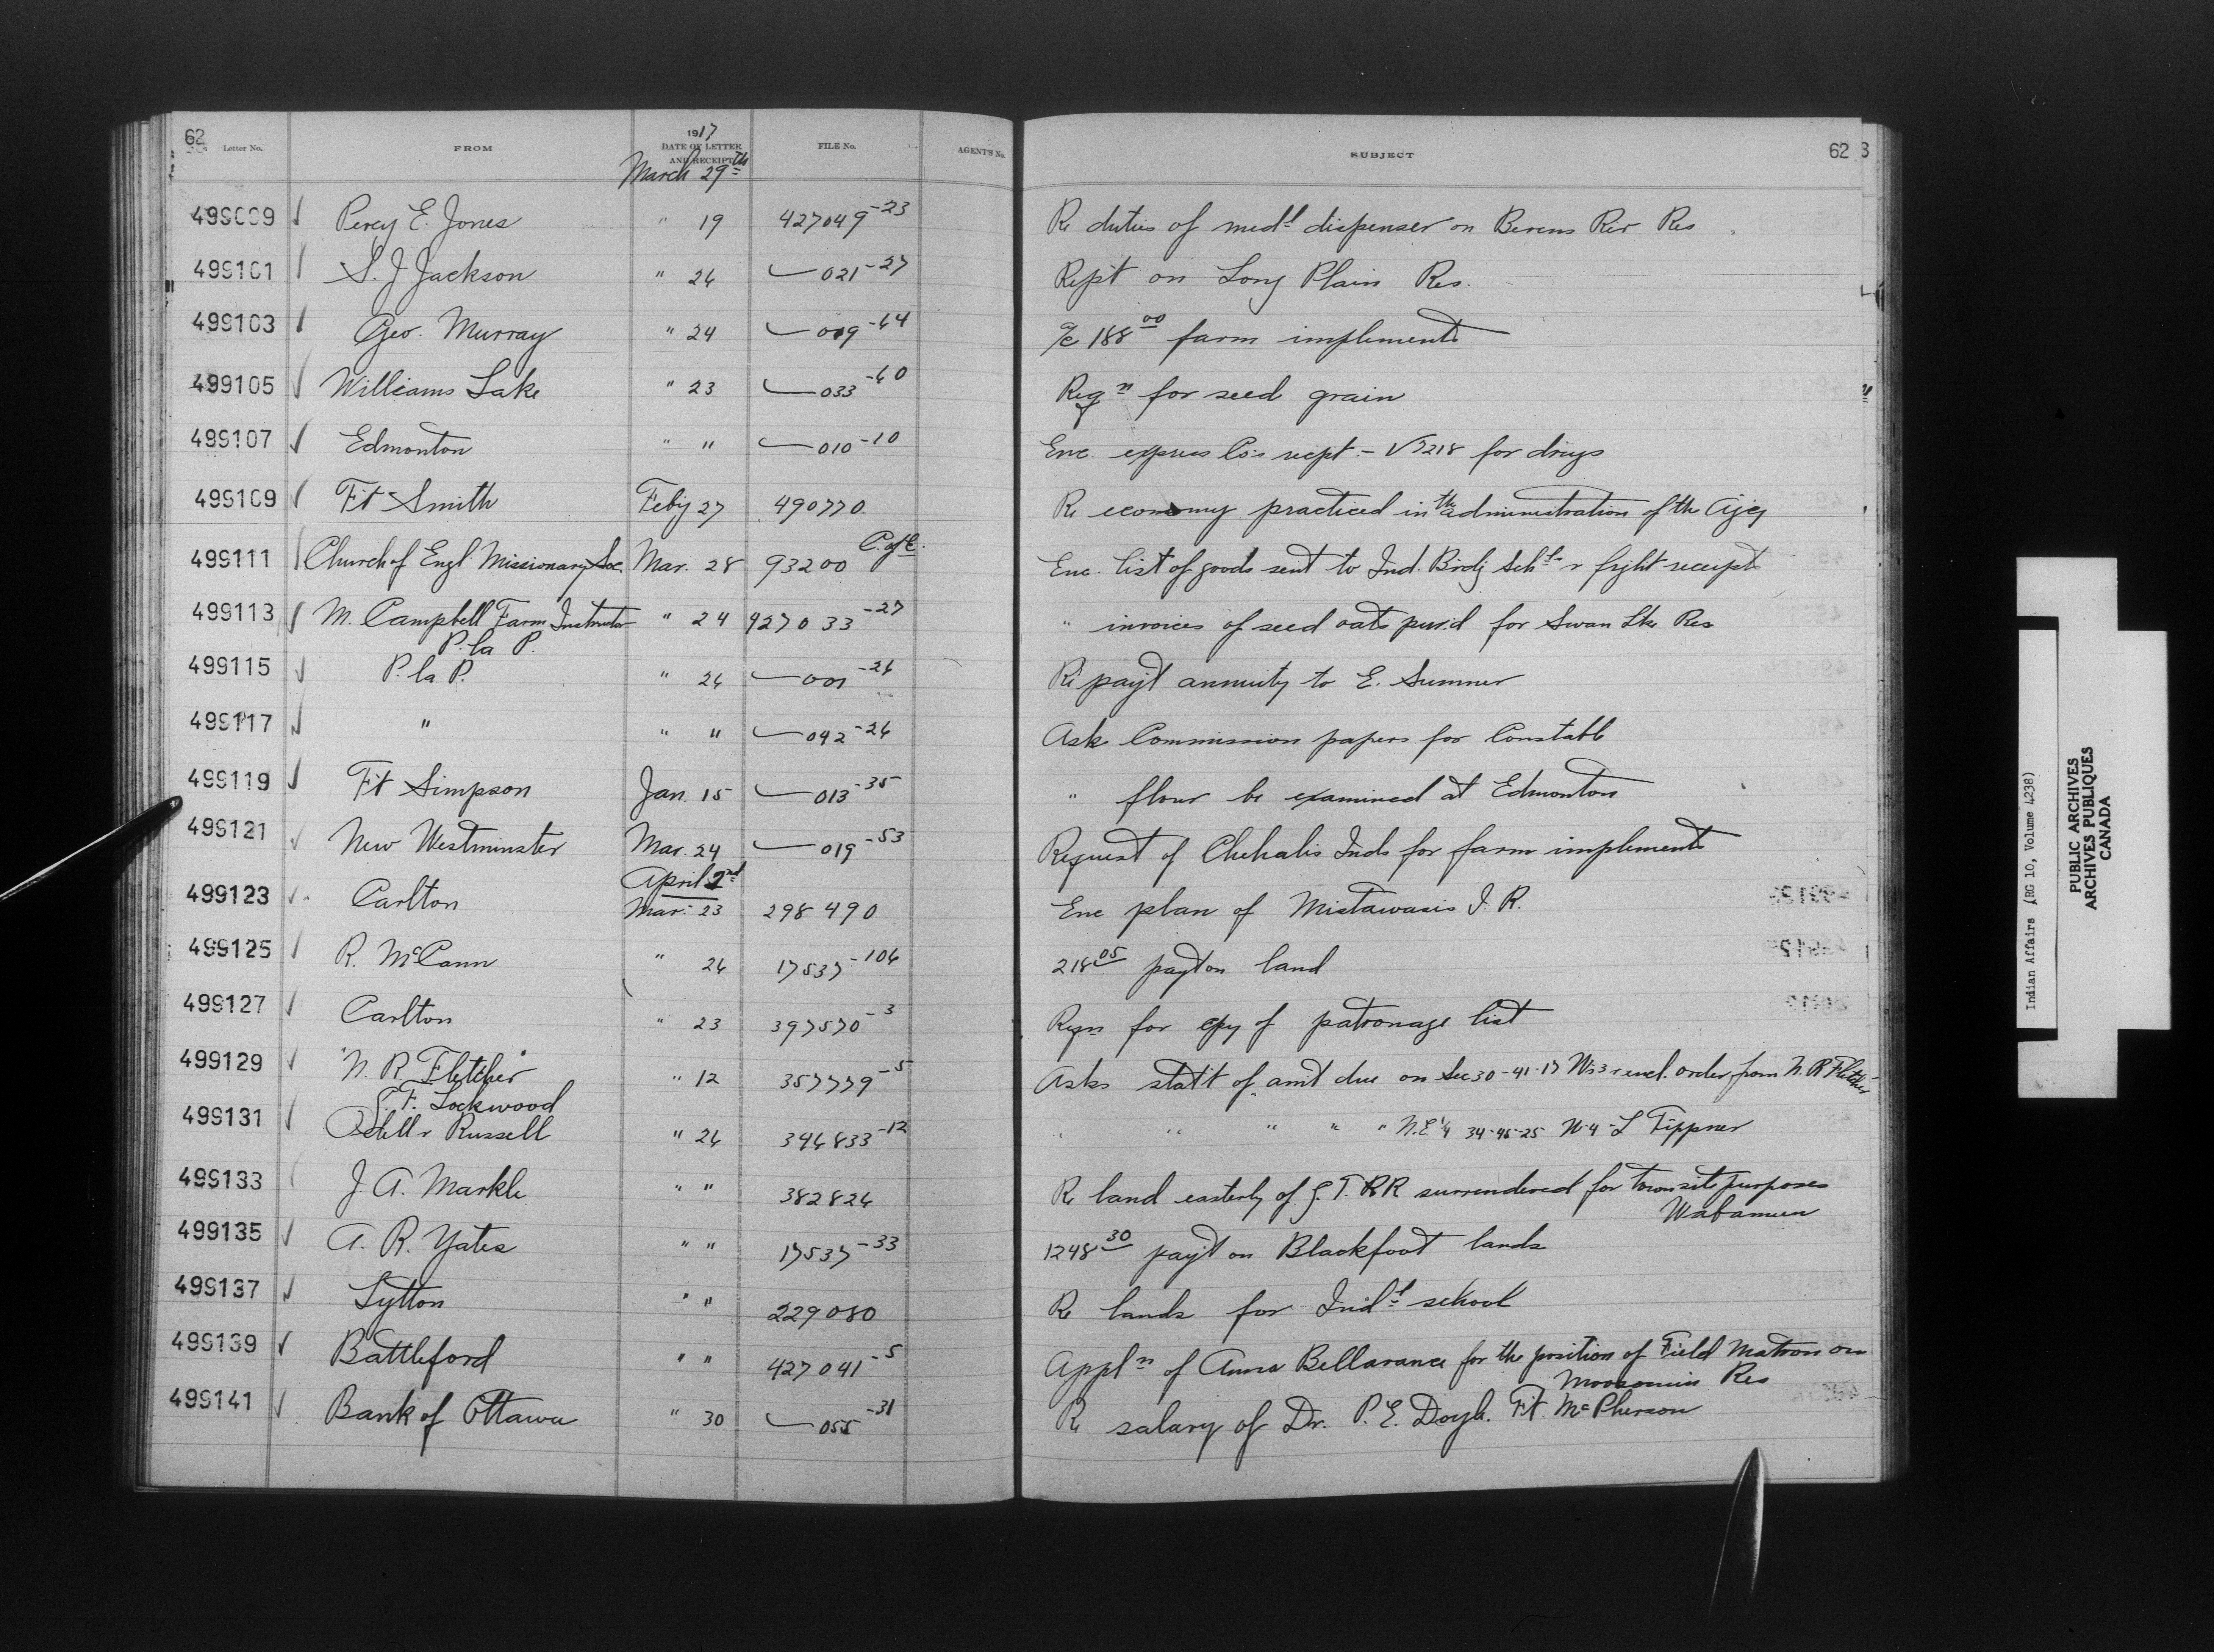 62 Letter No. FROM 1917 DATE OF LETTER AND RECEIPT FILE No. AGENT'S No. SUBJECT 62 3
March 29th
499099 Percy E. Jones " 19 427049-23 Re duties of medl dispenser on Berens Riv Res
499101 S. J Jackson " 26 021-27 Rept on Long Plain Res.
499103 Geo. Murray " 24 019-64 a/c 188 00 farm implements
499105 Williams Lake " 23 033-60 Reqn for seed grain
499107 Edmonton " " 010-10 Enc. express Co's recpt - V 7218 for drugs
499109 Ft Smith Feby 27 490770 Re economy practiced in the administration of the Agcy
499111 Church of Engl. Missionary Soc. Mar. 28 93200 C. of E. Enc. list of goods sent to Ind. Brdg Schls & frght receipts
499113 M. Campbell Farm Instructor " 24 427033-27 " invoices of seed oats purd for Swan Lke Res
P. la P.
499115 P. la P. " 26 001-26 Re payt annuity to E. Sumner
499117 " " " 092-26 Ask Commission papers for Constable
499119 Ft Simpson Jan. 15 013-35 " flour be examined at Edmonton
499121 New Westminster Mar. 24 019-53 Request of Chehalis Inds for farm implements
April 2nd
499123 Carlton Mar. 23 298490 Enc plan of Mistawasis I. R.
499125 R. McCann " 26 17537-106 218 05 payt on land
499127 Carlton " 23 397570-3 Reqn for cpy of patronage list
499129 "N. R. Fletcher" " 12 357779-5 Asks statt of amt due on Sec 30-41-17 W. 3 & encl. order from N. R Fletcher
F. Lockwood
499131 Odell & Russell " 26 346833-12 " " " " " N.E 1/4 34-45-25 W 4 - L Tippner
499133 J. A. Markle " " 382826 Re land easterly of G. T. RR surrendered for townsite purposes
Wabamun
499135 A. R. Yates " " 17537-33 1248 30 payt on Blackfoot lands
499137 Lytton " " 229080 Re lands for Indl school
499139 Battleford " " 427041-5 Appln of Anna Bellarance for the position of Field Matron on
Moosomin Res
499141 Bank of Ottawa " 30 055-31 Re salary of Dr. P. E. Doyle. Ft. McPherson
Indian Affairs (RG 10, Volume 4238)
PUBLIC ARCHIVES
ARCHIVES PUBLIQUES
CANADA